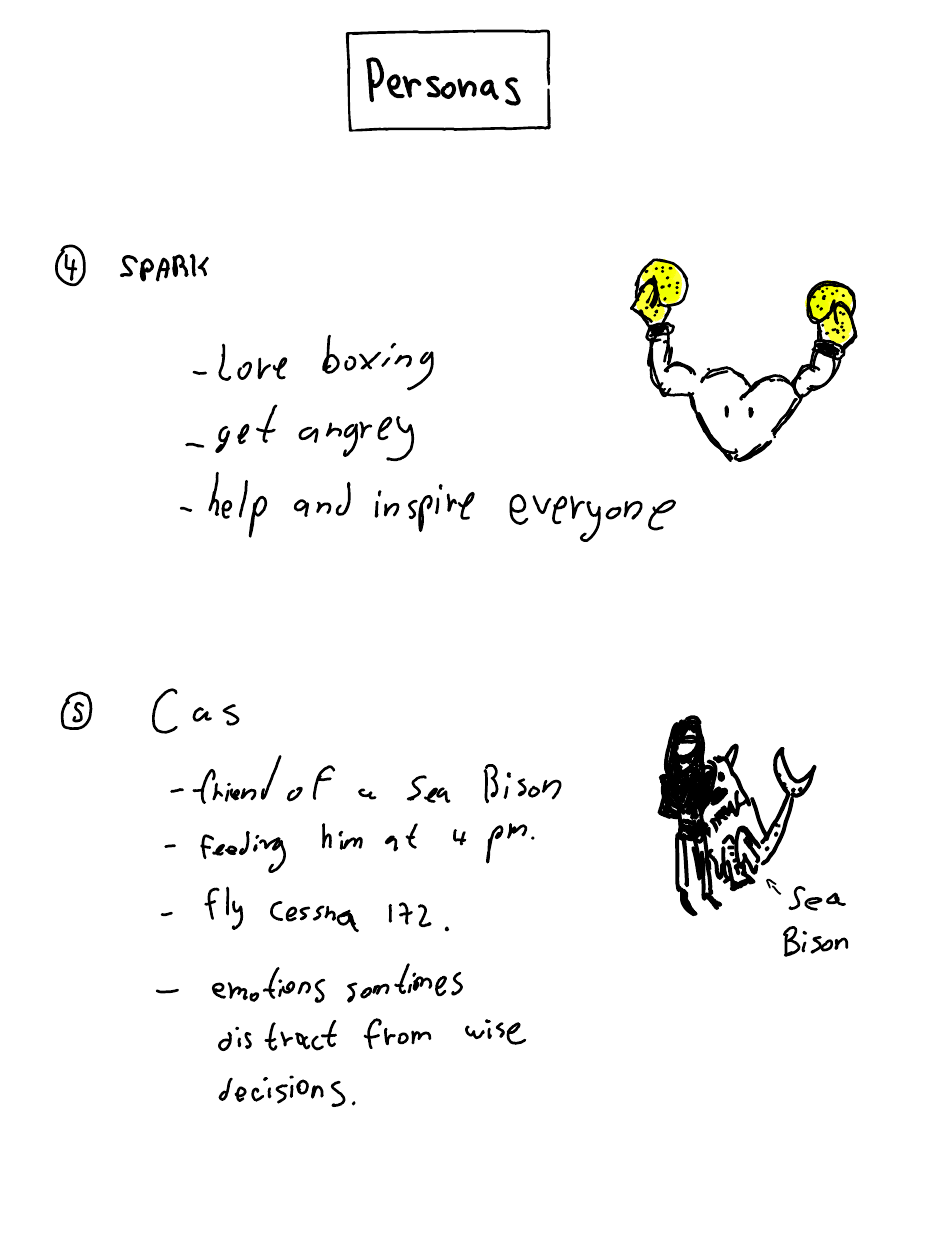 Personas
④ SPARK
- Love boxing
- get angrey
- help and inspire everyone
⑤ Cas
- friend of a Sea Bison
- feeding him at 4 pm.
- fly Cessna 172.
- emotions somtimes
distract from wise
decisions.
Sea
Bison